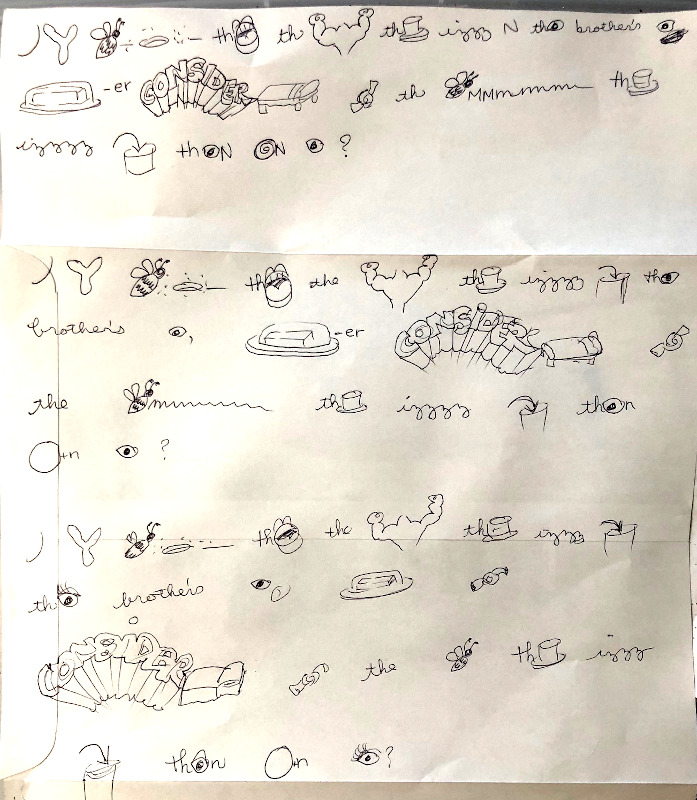 Y th th th izzz N th brother's
-er CONSIDER th MMmmmmm th
izzzz th N N ?
Y th the th izzzz th
brother's , -er CONSIDER
the mmmmmm th izzzz th n
n ?
Y th the th izzz
th brother's
CONSIDER the th izzz
th n n ?